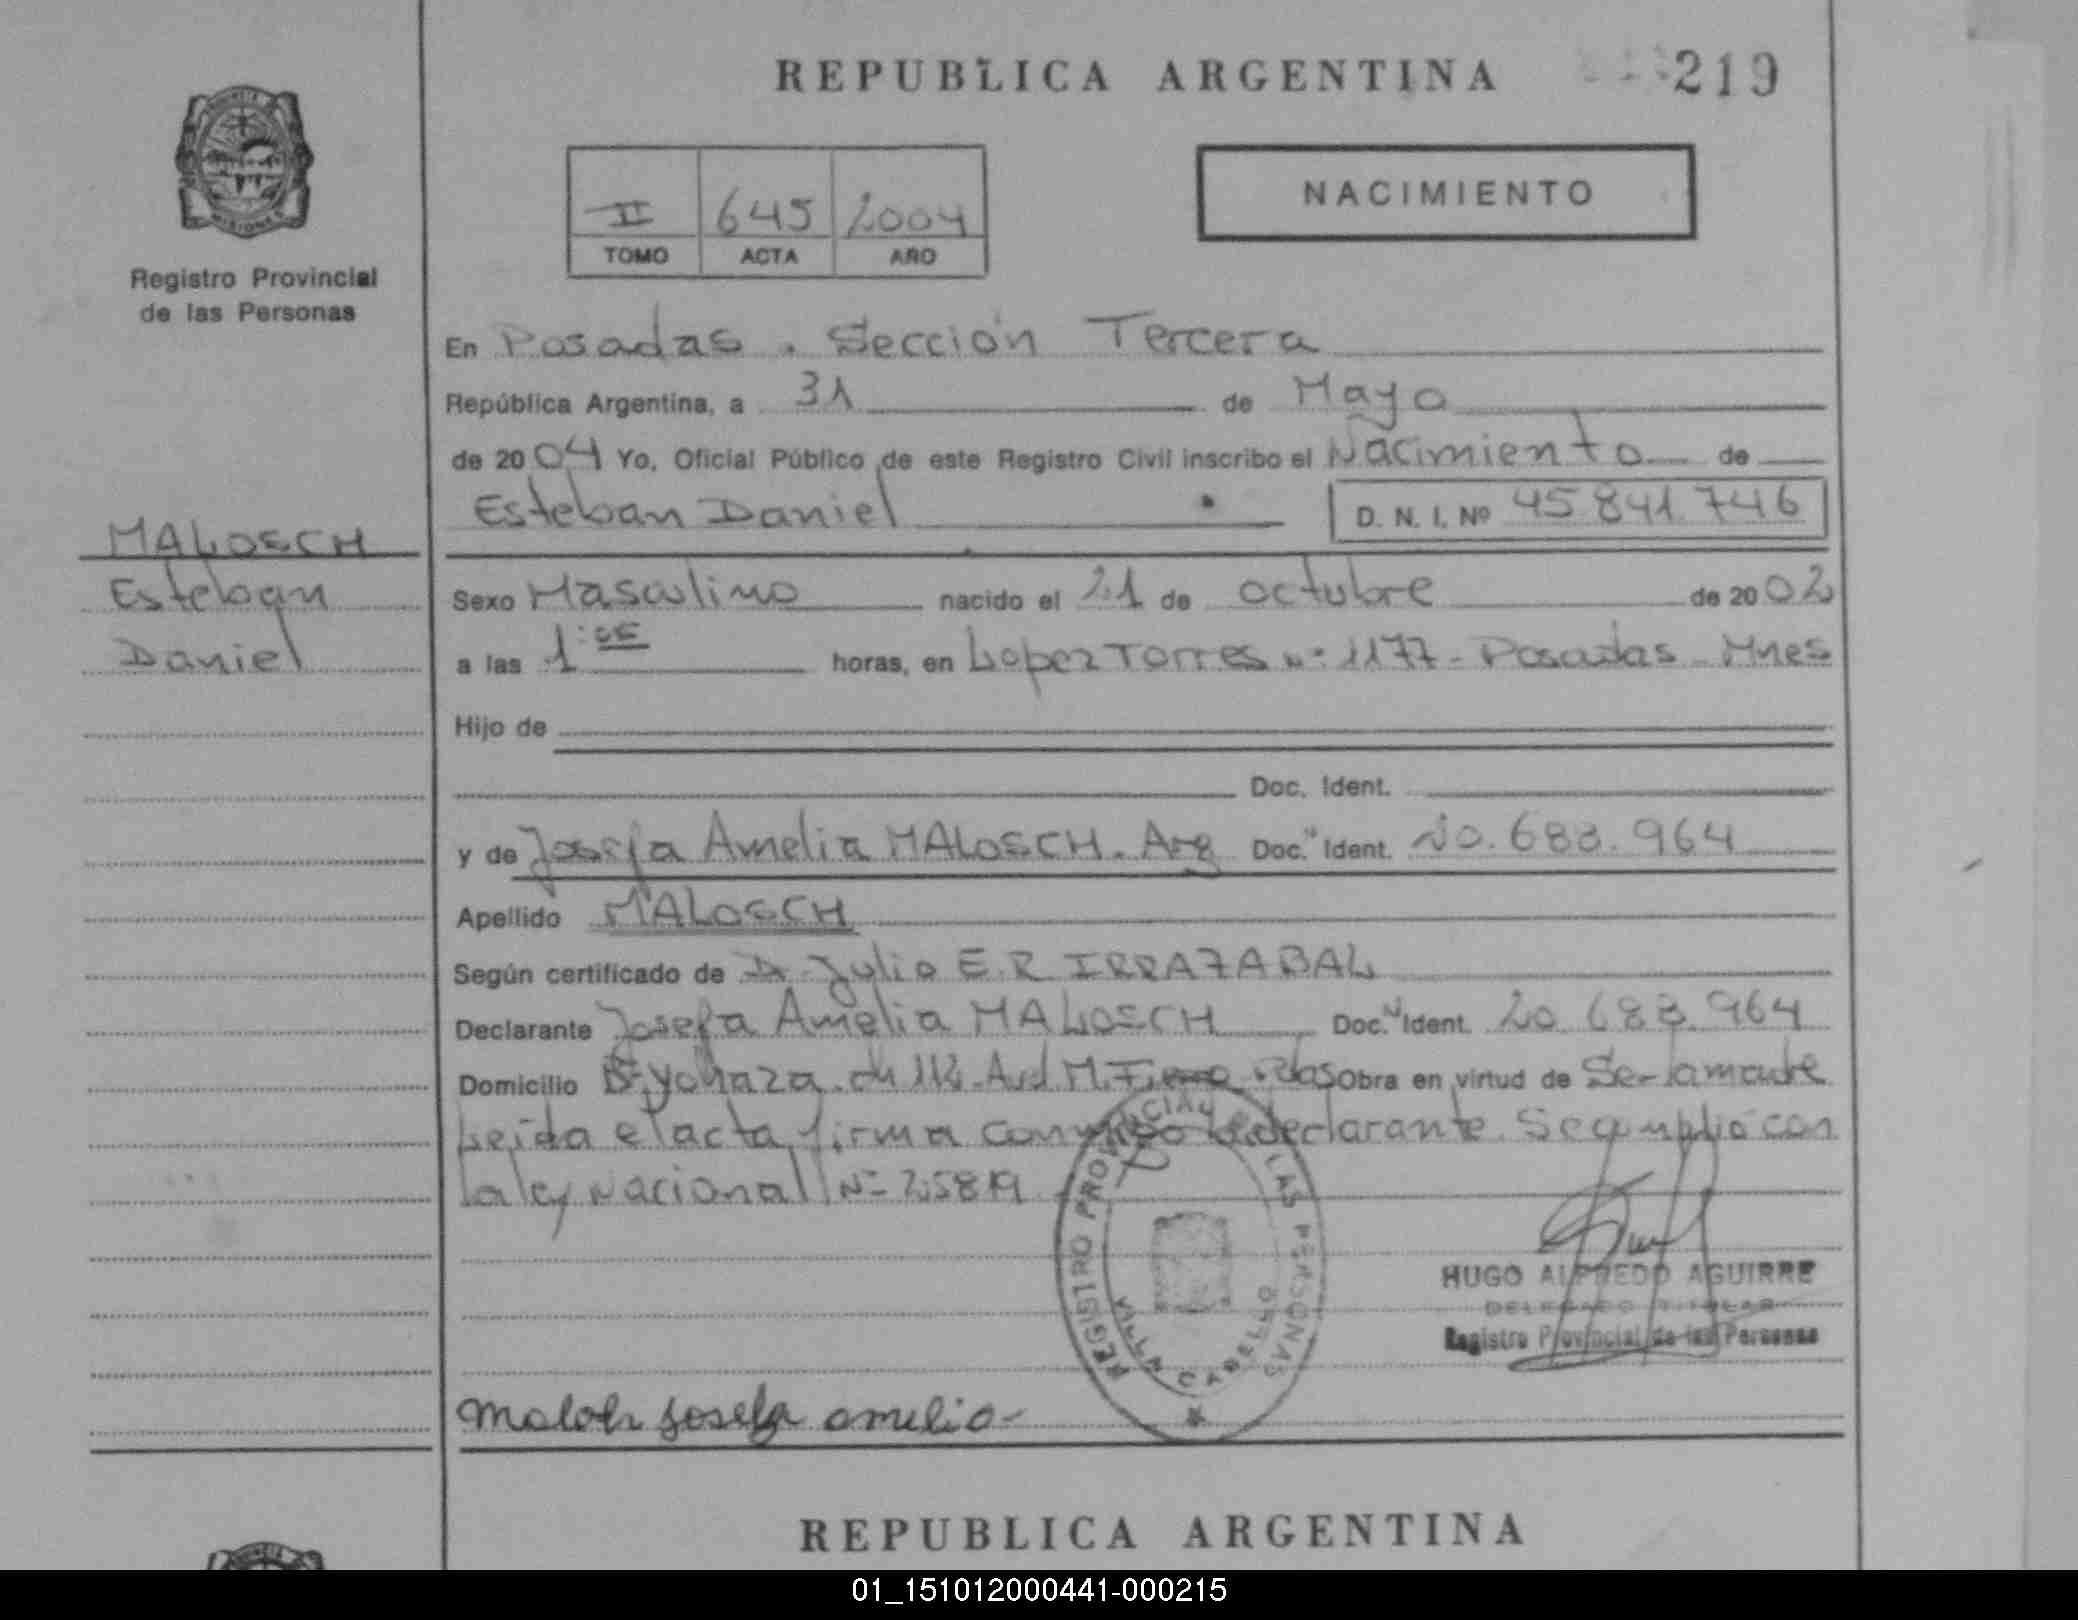 REPUBLICA ARGENTINA
219
PROVINCIA DE MISIONES
Registro Provincial
de las Personas
II 645 2004
TOMO ACTA AÑO
NACIMIENTO
En Posadas. Sección Tercera
República Argentina, a 31 de Mayo
de 2004 Yo, Oficial Público de este Registro Civil inscribo el Nacimiento de
Esteban Daniel D. N. I. Nº 45 841 746
MALOSCH
Esteban
Daniel
Sexo Masculino nacido el 21 de octubre de 2002
a las 1 horas, en Lopez Torres Nº 1177 - Posadas - Mnes
Hijo de
Doc. Ident.
y de Josefa Amelia MALOSCH. Arg Doc. Ident. 20.683.964
Apellido MALOSCH
Según certificado de Dr Julio E.R IRRAZABAL
Declarante Josefa Amelia MALOSCH Doc. Ident. 20 683.964
Domicilio Bº Yohaza. Obra en virtud de Ser la madre
Leida el acta firma conmigo la declarante. Se cumplió con
la ley Nacional Nº 25819
REGISTRO PROVINCIAL DE LAS PERSONAS
VILLA CABELLO
HUGO ALFREDO AGUIRRE
DELEGADO TITULAR
Registro Provincial de las Personas
Josefa Amelia
REPUBLICA ARGENTINA
01_151012000441-000215